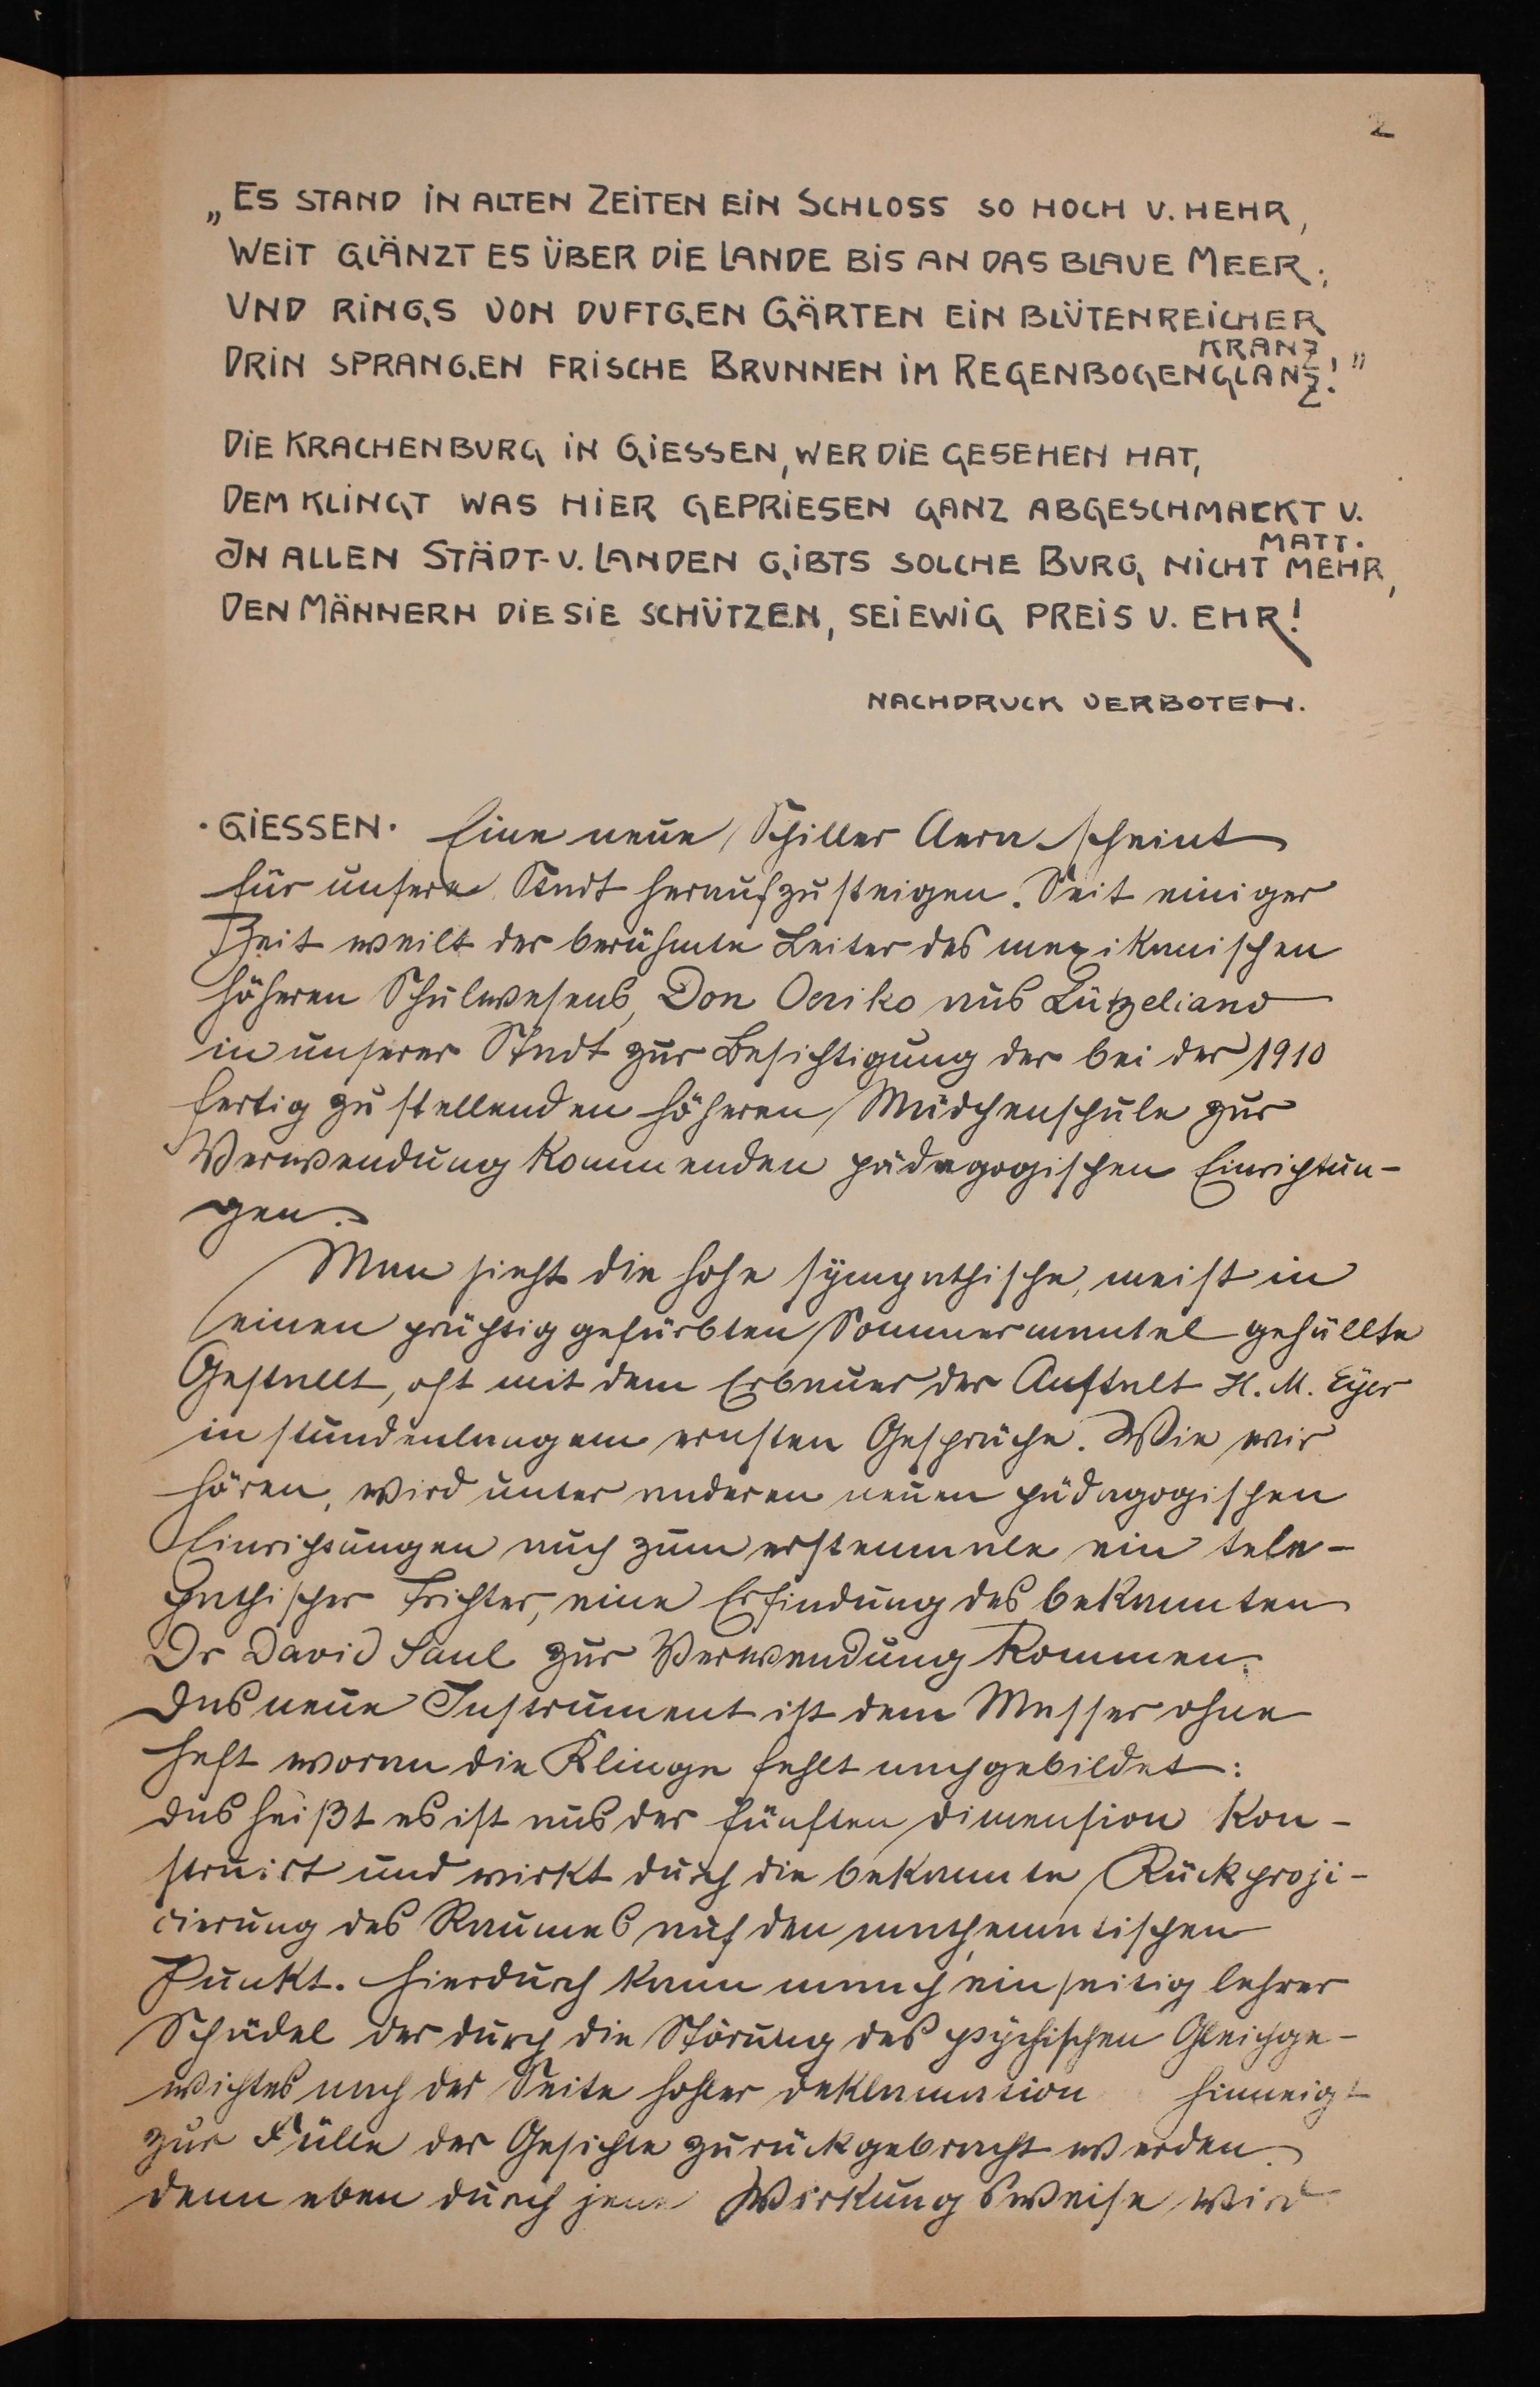 2
„Es stand in alten Zeiten ein Schloss so hoch u. hehr,
Weit glänzt es über die Lande bis an das blaue Meer;
Und rings von duftgen Gärten ein blütenreicher Kranz,
Drin sprangen frische Brunnen im Regenbogenglanz!"
Die Krachenburg in Giessen, wer die gesehen hat,
Dem klingt was hier gepriesen ganz abgeschmackt u. matt.
In allen Städt- u. Landen gibts solche Burg nicht mehr,
Den Männern die sie schützen, sei ewig Preis u. Ehr!
Nachdruck verboten.
· GIESSEN · Eine neue Schiller Aera scheint
für unsere Stadt heraufzusteigen. Seit einiger
Zeit weilt der berühmte Leiter des mexikanischen
höheren Schulwesens, Don Oeriko aus Lützeliano
in unserer Stadt zur Besichtigung der bei der 1910
fertig zu stellenden höheren Mädchenschule zur
Verwendung kommenden pädagogischen Einrichtun-
gen.
Man sieht die hohe sympathische, meist in
einen prächtig gefärbten Sommermantel gehüllte
Gestallt, oft mit dem Erbauer der Anstalt H. M. Eyer
in stundenlangem ernsten Gespräche. Wie wir
hören, wird unter anderen neuen pädagogischen
Einrichtungen auch zum erstenmale ein tele-
pathischer Trichter, eine Erfindung des bekannten
Dr David Saul zur Verwendung kommen.
Das neue Instrument ist dem Messer ohne
Heft woran die Klinge fehlt nachgebildet:
das heißt es ist aus der fünften Dimension kon-
struirt und wirkt durch die bekannte Rückproji-
cierung des Raumes auf den mathematischen
Punkt. Hierdurch kann manch einseitig lehrer
Schädel der durch die Störung des psychischen Gleichge-
wichtes nach der Seite hohler Deklamation hinneigt
zur Fülle der Gesichte zurückgebracht werden.
denn eben durch jene Wirkungsweise wird